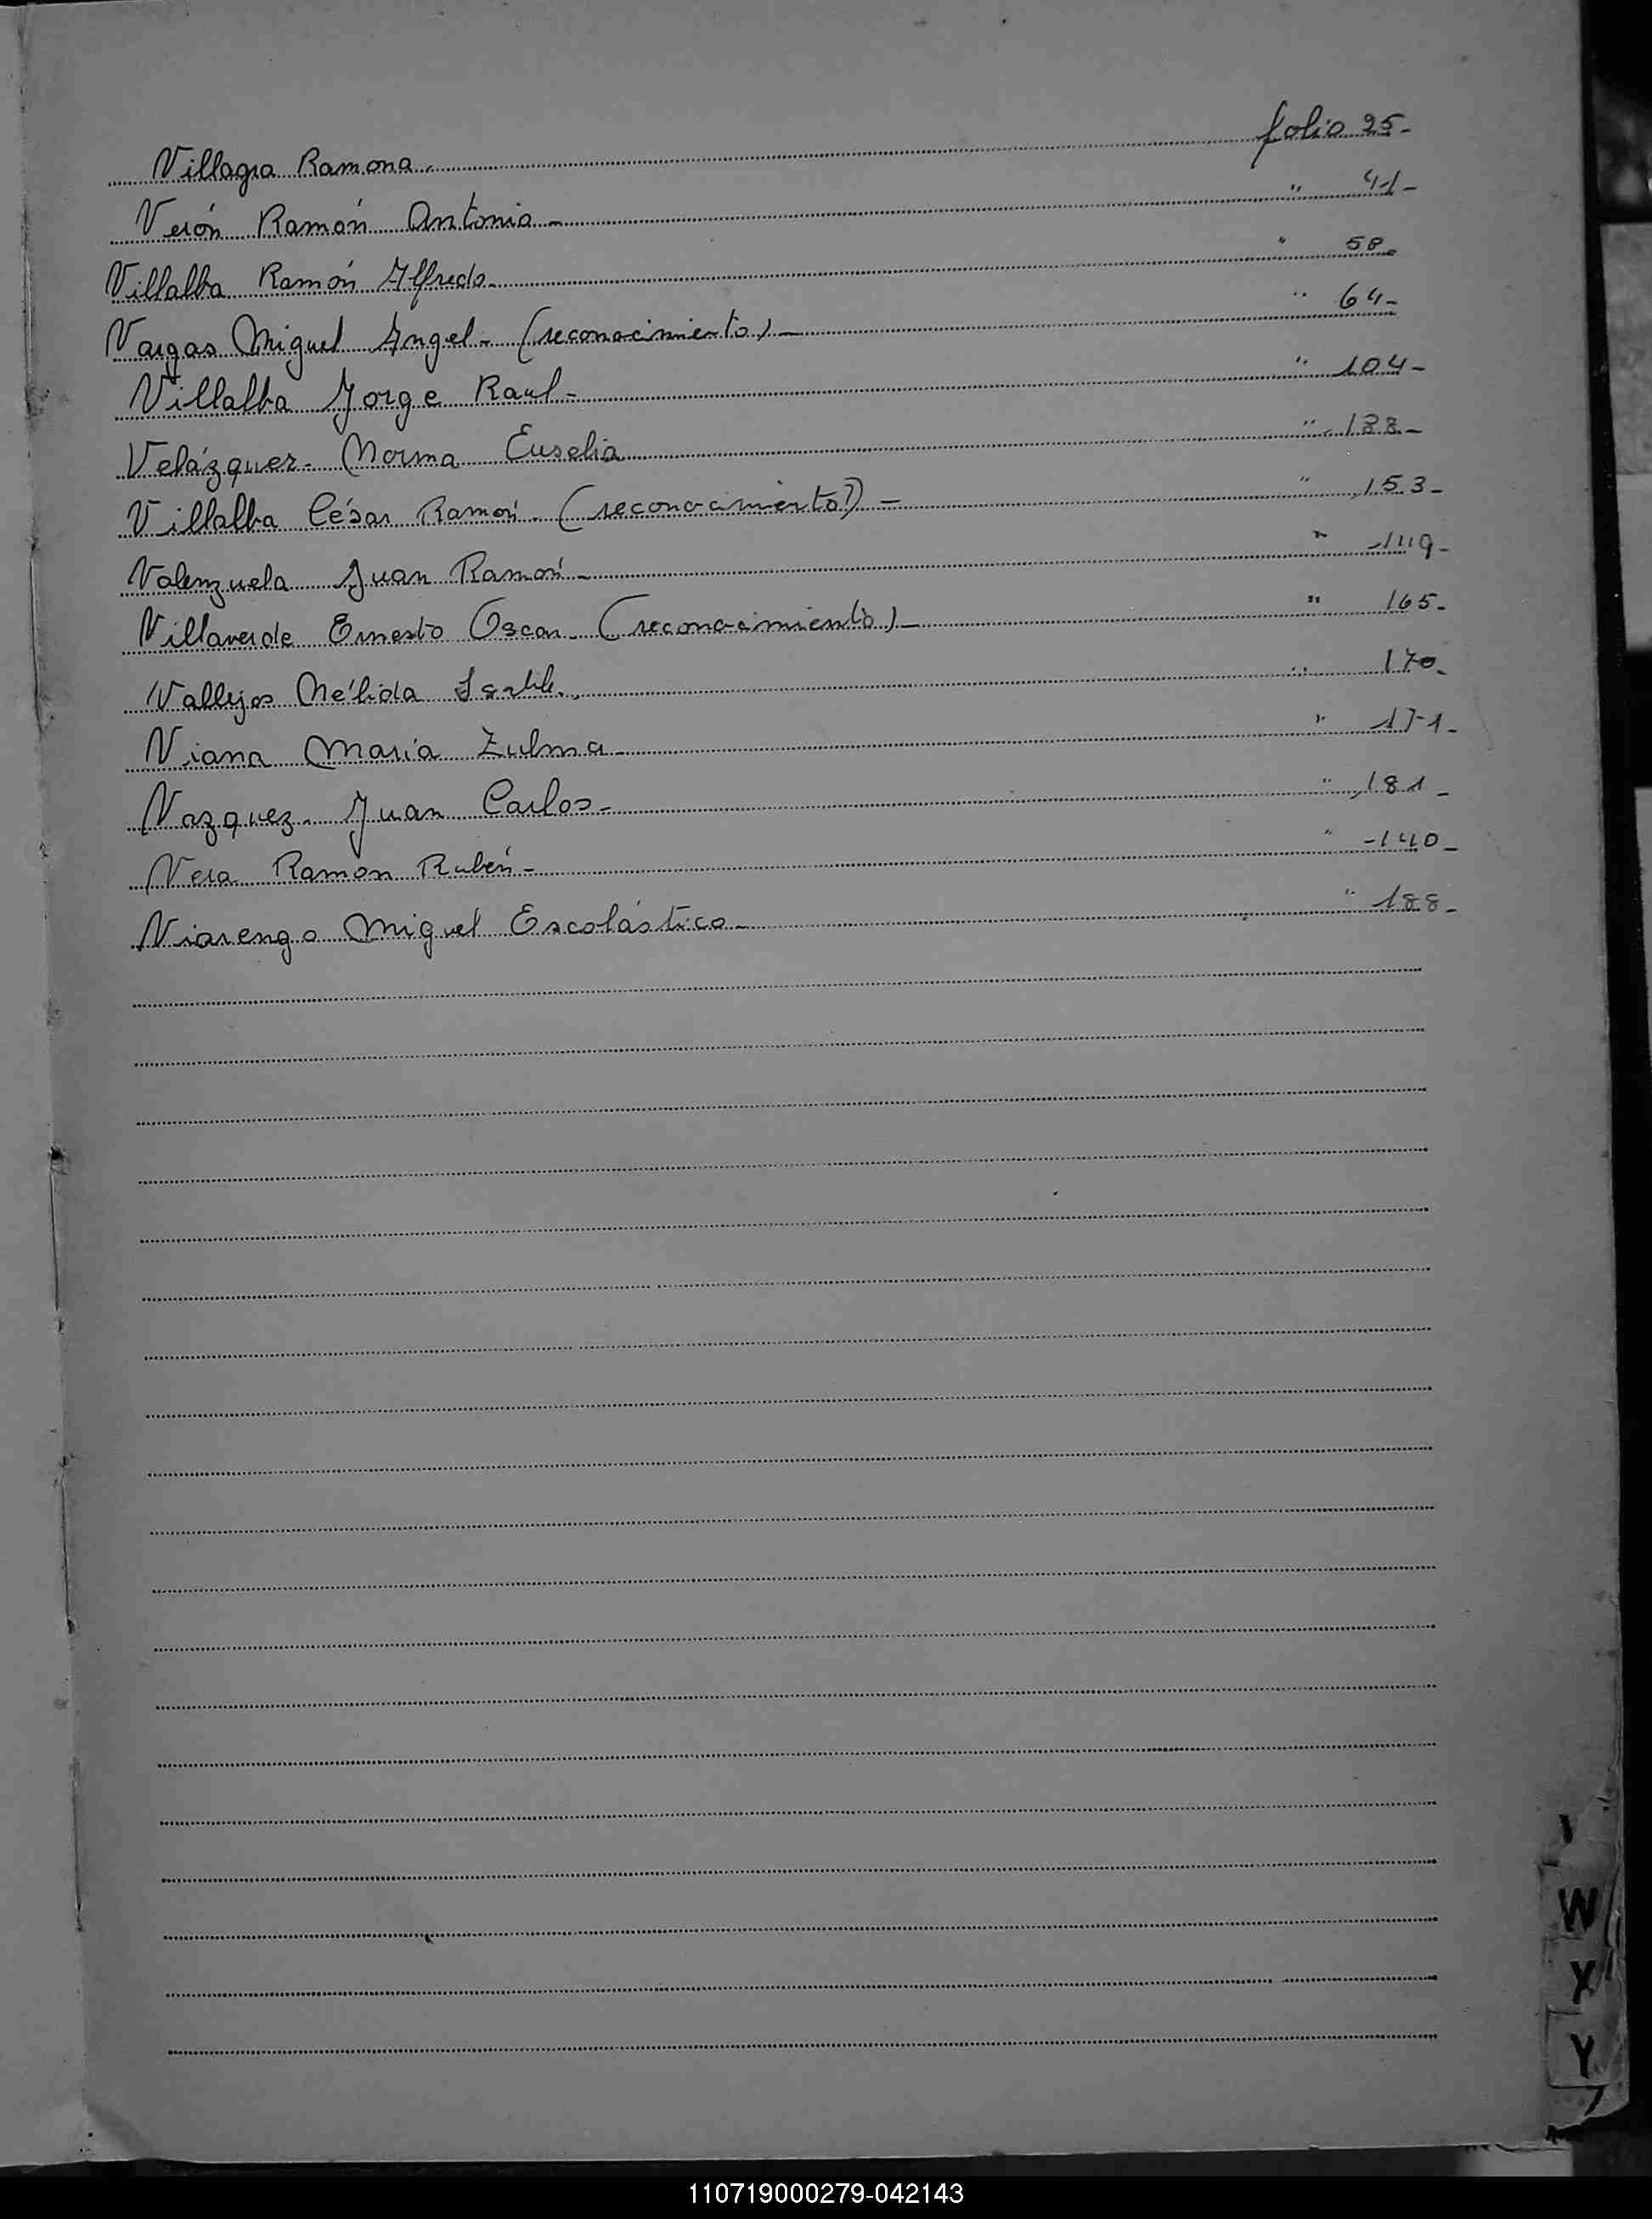 Villagra Ramona. folio 25-
Verón Ramón Antonio- " 41-
Villalba Ramón Alfredo- " 58-
Vargas Miguel Angel- (reconocimiento)- " 64-
Villalba Jorge Raul- " 104-
Velázquez- Norma Euselia "
Villalba César Ramón- (reconocimiento)- " 153-
Valenzuela Juan Ramón- " 149-
Villaverde Ernesto Oscar- (reconocimiento)- " 165-
Vallejos Nélida " 170-
Viana María Zulma- " 171-
Vazquez- Juan Carlos- " 181-
Vera Ramón Rubén- " -140-
Viarengo Miguel Escolástico- " 188-
W
X
Y
110719000279-042143